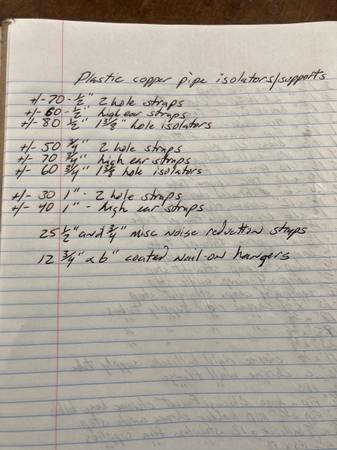 Plastic copper pipe isolators/supports
+/- 70 - 1/2" 2 hole straps
+/- 60 - 1/2" high ear straps
+/- 80 1/2" 1 3/8" hole isolators
+/- 50 3/4" 2 hole straps
+/- 70 3/4" high ear straps
+/- 60 3/4" hole isolators
+/- 30 1" - 2 hole straps
+/- 40 1" - high ear straps
25 1/2" and 3/4" misc noise reduction straps
12 3/4" x 6" coated nail-on hangers